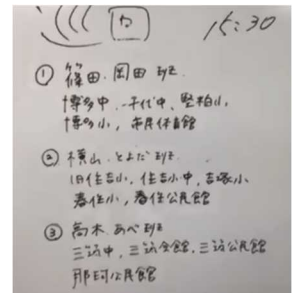 15:30
① 篠田・岡田班
博多中、千代中、堅粕小、
博多小、市民体育館
② 横山・とよだ班
旧住吉小、住吉小中、吉塚小
春住小、春住公民館
③ 高木・あべ班
三筑中、三筑会館、三筑公民館
那珂公民館